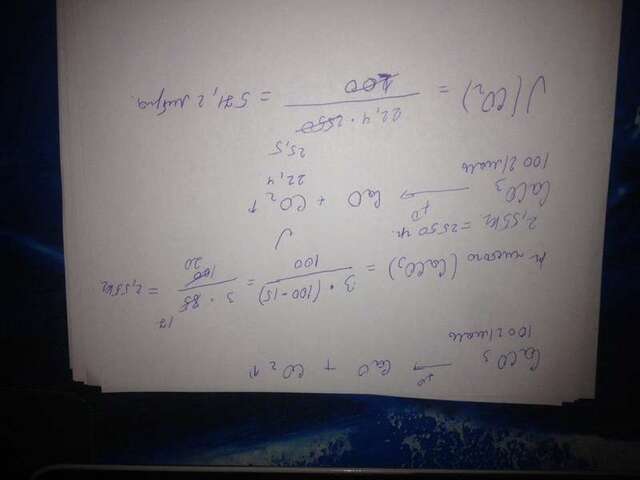 CaCO3 →t° CaO + CO2↑
100 г/моль
m чистого (CaCO3) = 3 · (100-15) / 100 = 3 · 85 / 100 = 2,55кг
17
20
2,55кг = 2550 гр.
V
CaCO3 →t° CaO + CO2↑
100 г/моль
22,4
25,5
V(CO2) = 22,4 · 2550 / 100 = 571,2 литра.